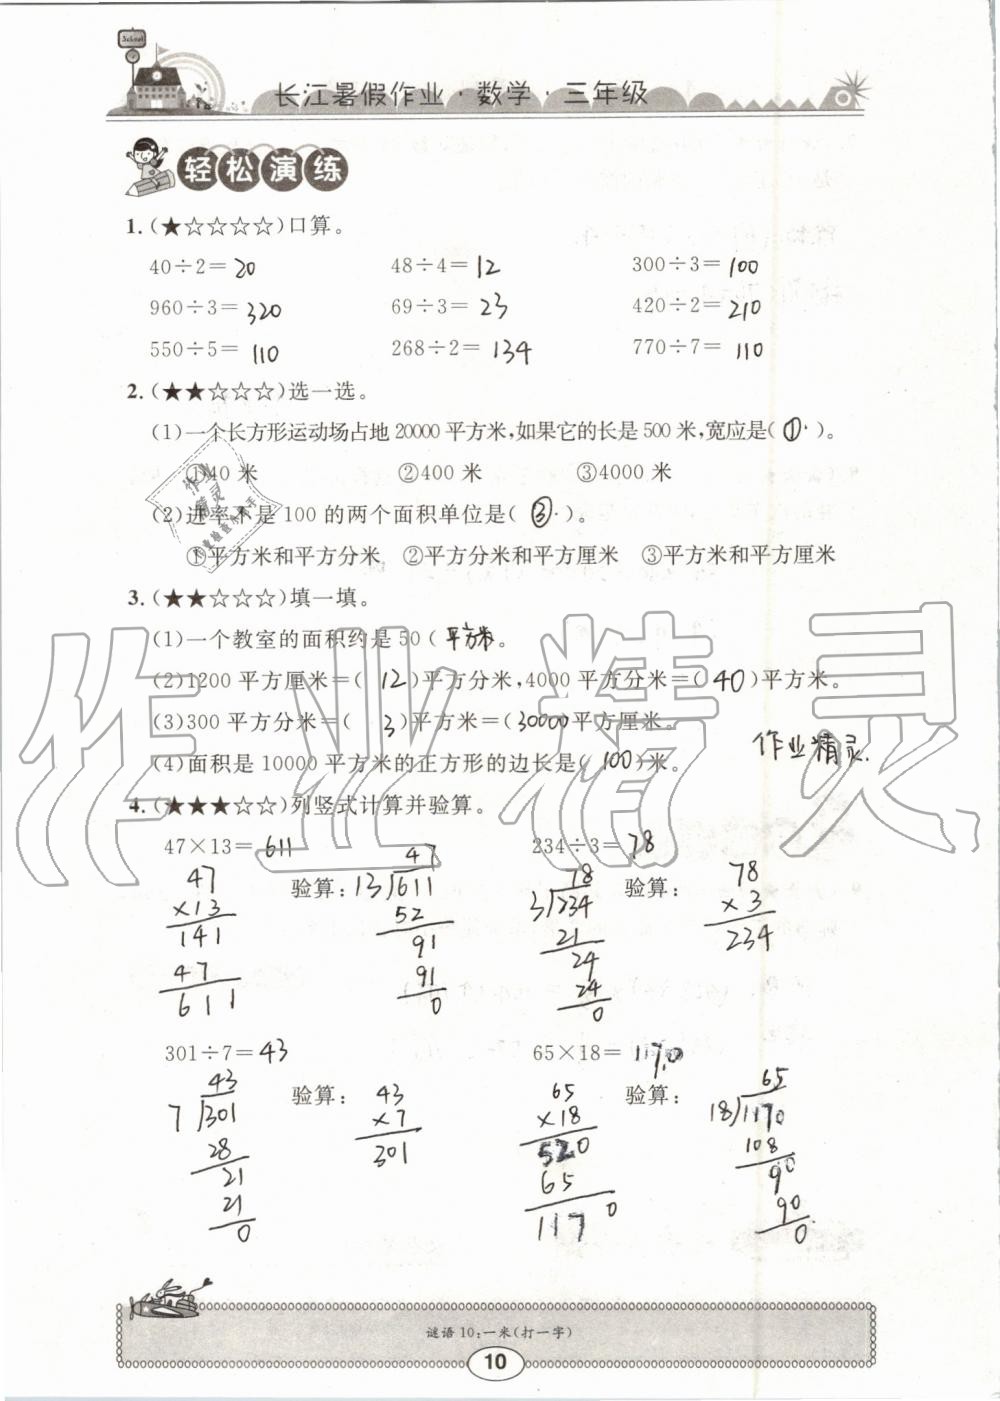 School
长江暑假作业·数学·三年级
轻松演练
1.(★☆☆☆☆)口算。
40÷2=20 48÷4=12 300÷3=100
960÷3=320 69÷3=23 420÷2=210
550÷5=110 268÷2=134 770÷7=110
2.(★★☆☆☆)选一选。
(1)一个长方形运动场占地20000平方米,如果它的长是500米,宽应是(①)。
①40米 ②400米 ③4000米
(2)进率不是100的两个面积单位是(③)。
①平方米和平方分米 ②平方分米和平方厘米 ③平方米和平方厘米
3.(★★☆☆☆)填一填。
(1)一个教室的面积约是50(平方米。
(2)1200平方厘米=(12)平方分米,4000平方分米=(40)平方米。
(3)300平方分米=(3)平方米=(30000平方厘米。
(4)面积是10000平方米的正方形的边长是(100)米。
作业精灵
4.(★★★☆☆)列竖式计算并验算。
47×13=611 234÷3=78
47 验算: 47 78 验算: 78
×13 13 611 3 234 ×3
141 52 21 234
47 91 24
611 91 24
0 0
301÷7=43 65×18=1170
43 验算: 43 65 验算: 65
7 301 ×7 ×18 18 1170
28 301 520 108
21 65 90
21 1170 90
0 0
谜语10:一米(打一字)
10
作业精灵